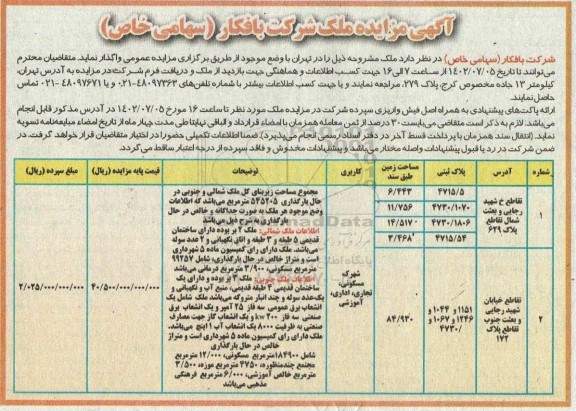 آگهی مزایده ملک شرکت بافکار (سهامی خاص)
شرکت بافکار (سهامی خاص) در نظر دارد ملک مشروحه ذیل را در تهران با وضع موجود از طریق برگزاری مزایده عمومی واگذار نماید. متقاضیان محترم
می‌توانند تا تاریخ ۱۴۰۲/۰۷/۰۵ از ساعت ۷ الی ۱۶ جهت کسب اطلاعات و هماهنگی جهت بازدید از ملک و دریافت فرم شرکت در مزایده به آدرس تهران،
کیلومتر ۱۳ جاده مخصوص کرج، پلاک ۲۷۹، مراجعه نمایند و یا جهت کسب اطلاعات بیشتر با شماره تلفن‌های ۴۸۰۹۷۳۶۳-۰۲۱ و یا ۴۸۰۹۷۶۷۱-۰۲۱ تماس
حاصل نمایند.
ارائه پاکت‌های پیشنهادی به همراه اصل فیش واریزی سپرده شرکت در مزایده ملک مورد نظر تا ساعت ۱۶ مورخ ۱۴۰۲/۰۷/۰۵ در آدرس مذکور قابل انجام
می‌باشد. لازم به ذکر است متقاضی می‌بایست ۳۰ درصد از ثمن معامله همزمان با امضاء قرارداد و الباقی نهایتا طی مدت چهار ماه از تاریخ امضاء مبایعه‌نامه تسویه
نماید. (انتقال سند همزمان با پرداخت قسط آخر در دفتر اسناد رسمی انجام می‌پذیرد). ضمنا اطلاعات تکمیلی حضورا در اختیار متقاضیان قرار خواهد گرفت. در
ضمن شرکت در رد یا قبول پیشنهادات واصله مختار می‌باشد و پیشنهادات مخدوش و فاقد سپرده از درجه اعتبار ساقط می‌گردد.
شماره آدرس پلاک ثبتی مساحت زمین طبق سند کاربری توضیحات قیمت پایه مزایده (ریال) مبلغ سپرده (ریال)
۱
تقاطع خ شهید
رجایی و بعثت
شمال تقاطع
پلاک ۶۲۹
۴۷۱۵/۵ ۶/۴۴۳
۴۷۳۰/۱۰۷۰ ۱۱/۷۵۶
۴۷۳۰/۱۸۰۶ ۱۴/۵۱۷
۴۷۱۵/۵۴ ۳/۴۶۸
۲
تقاطع خیابان
شهید رجایی
و بعثت جنوب
تقاطع پلاک
۱۷۲
۱۱۵۱ و ۱۰۴۴ و
۱۲۴۶ و ۱۰۶۷ و
۴۷۳۰/
۸۴/۹۳۰
شهرک
مسکونی،
تجاری، اداری،
آموزشی
مجموع مساحت زیربنای کل ملک شمالی و جنوبی در
حال بارگذاری ۵۴۵۲۰۵ مترمربع می‌باشد که اطلاعات
وضع موجود هر ملک به صورت جداگانه و خالص در حال
بارگذاری به شرح ذیل می‌باشد
اطلاعات ملک شمالی: ملک ۲ بر بوده دارای ساختمان
قدیمی ۵ طبقه و ۳ طبقه و اتاق نگهبانی و ۲ عدد سوله
می‌باشد. ملک دارای رای کمیسیون ماده ۵ شهرداری
است و متراژ خالص در حال بارگذاری، شامل ۹۹۲۵۷
مترمربع مسکونی، ۳/۹۰۰ مترمربع درمانی می‌باشد
اطلاعات ملک جنوبی: ملک ۳ بر بوده و دارای یک
ساختمان قدیمی ۳ طبقه قدیمی، منبع آب و نگهبانی و
یک‌عدد سوله و چند انبار متروکه می‌باشد ملک شامل یک
انشعاب برق عمومی سه فاز ۲۵ آمپر و یک انشعاب برق
صنعتی سه فاز ۲۰۰ kw و یک انشعاب گاز جهت مصارف
صنعتی به ظرفیت ۸۰۰۰ یک انشعاب آب ۱ اینچ می‌باشد.
ملک دارای رای کمیسیون ماده ۵ شهرداری است و متراژ
خالص در حال بارگذاری
شامل ۱۸۴۹۰۰ مترمربع مسکونی، ۱۲/۰۰۰ مترمربع
مجتمع چندمنظوره، ۴۷۵۰ مترمربع موزه، ۳/۵۰۰
مترمربع خالص آموزشی، ۶/۰۰۰ مترمربع فرهنگی
مذهبی می‌باشد
۴۰/۵۰۰/۰۰۰/۰۰۰/۰۰۰
۲/۰۲۵/۰۰۰/۰۰۰/۰۰۰